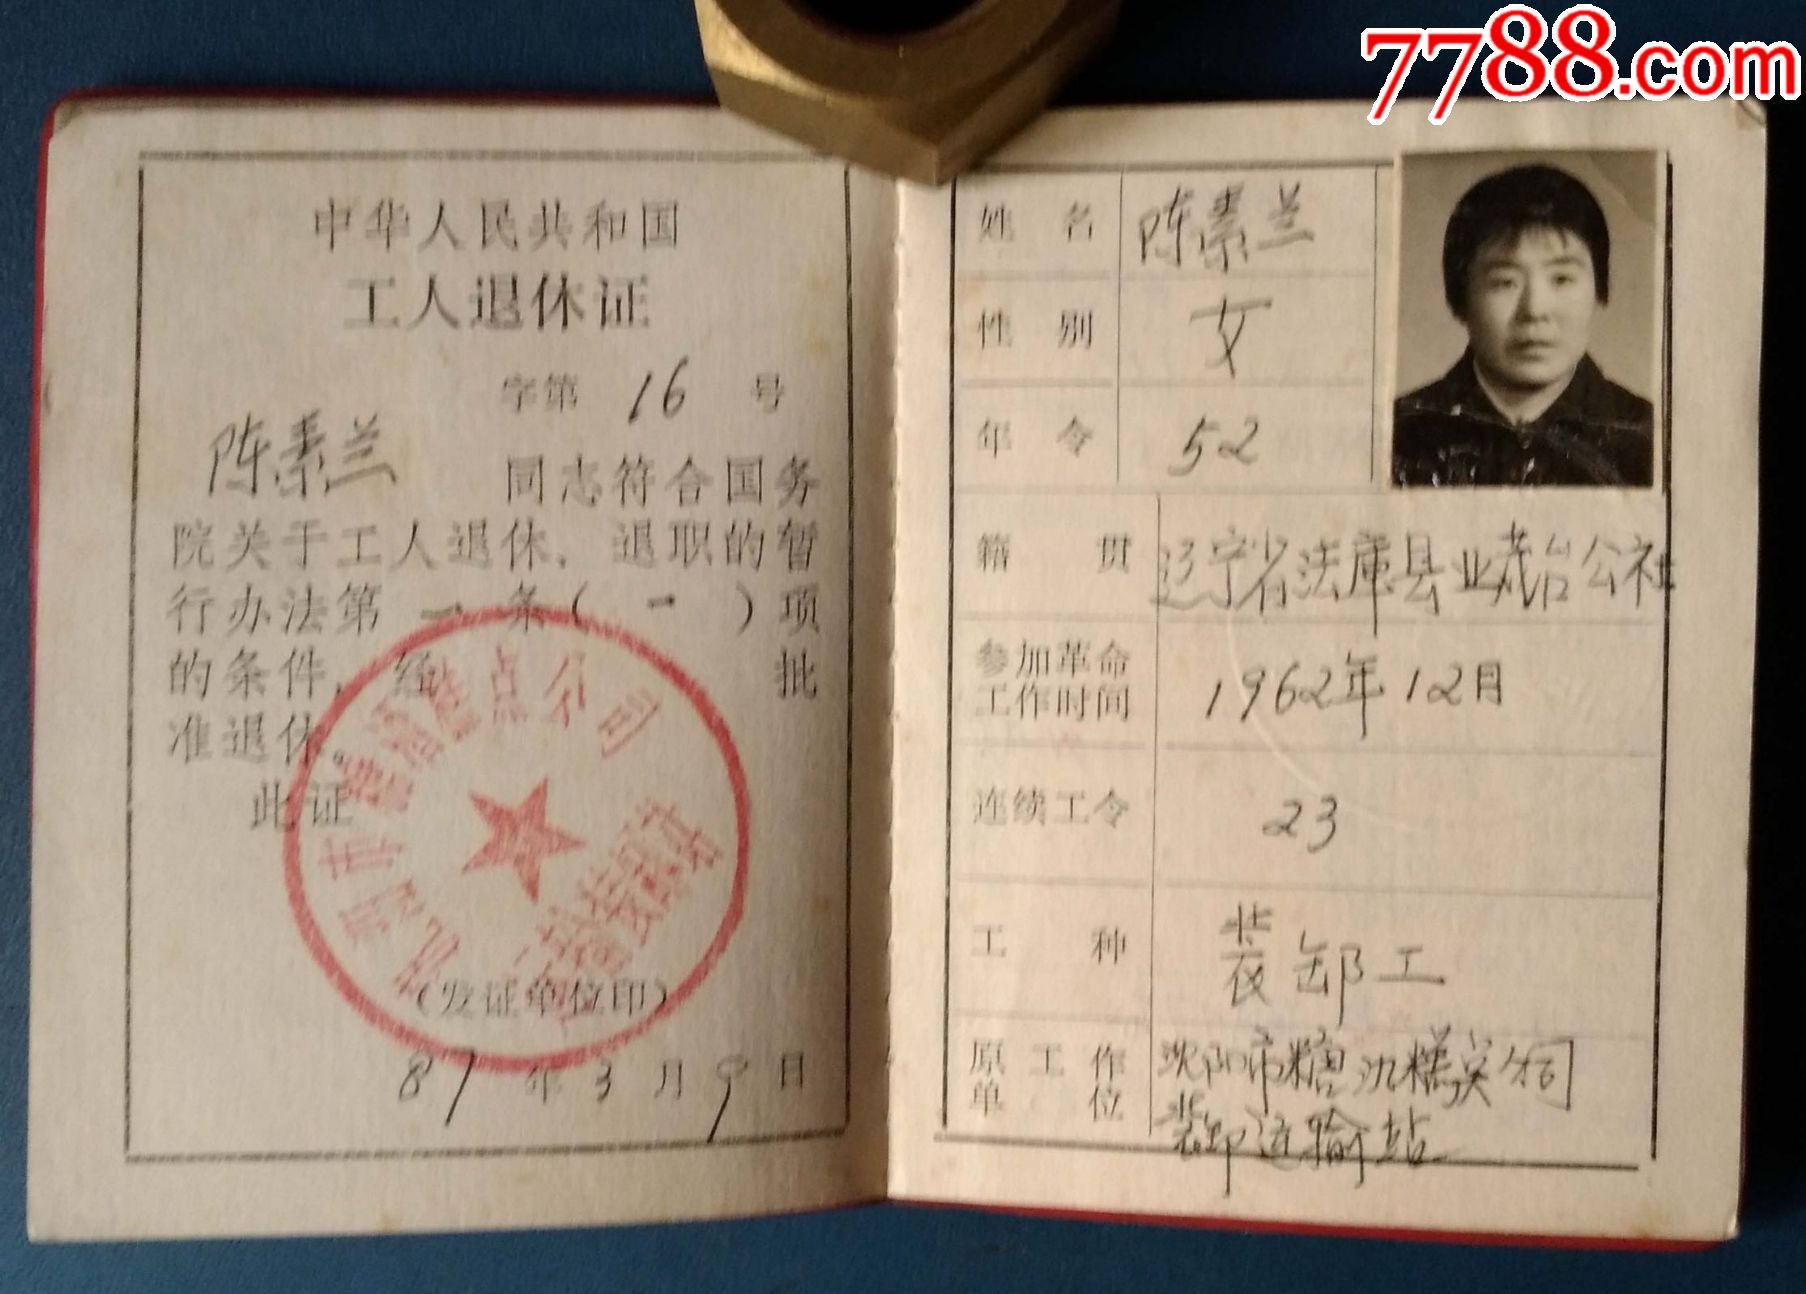 7788.com
中华人民共和国
工人退休证
字第 16 号
陈素兰 同志符合国务
院关于工人退休、退职的暂
行办法第 一 条（ 一 ）项
的条件，经 批
准退休。
此证
沈阳市糖酒糕点公司
装卸运输站
（发证单位印）
87年3月9日
姓名 陈素兰
性别 女
年令 52
籍贯 辽宁省法库县业茂台公社
参加革命
工作时间 1962年12月
连续工令 23
工种 装卸工
原工作
单位 沈阳市糖氿糕点公司
装卸运输站